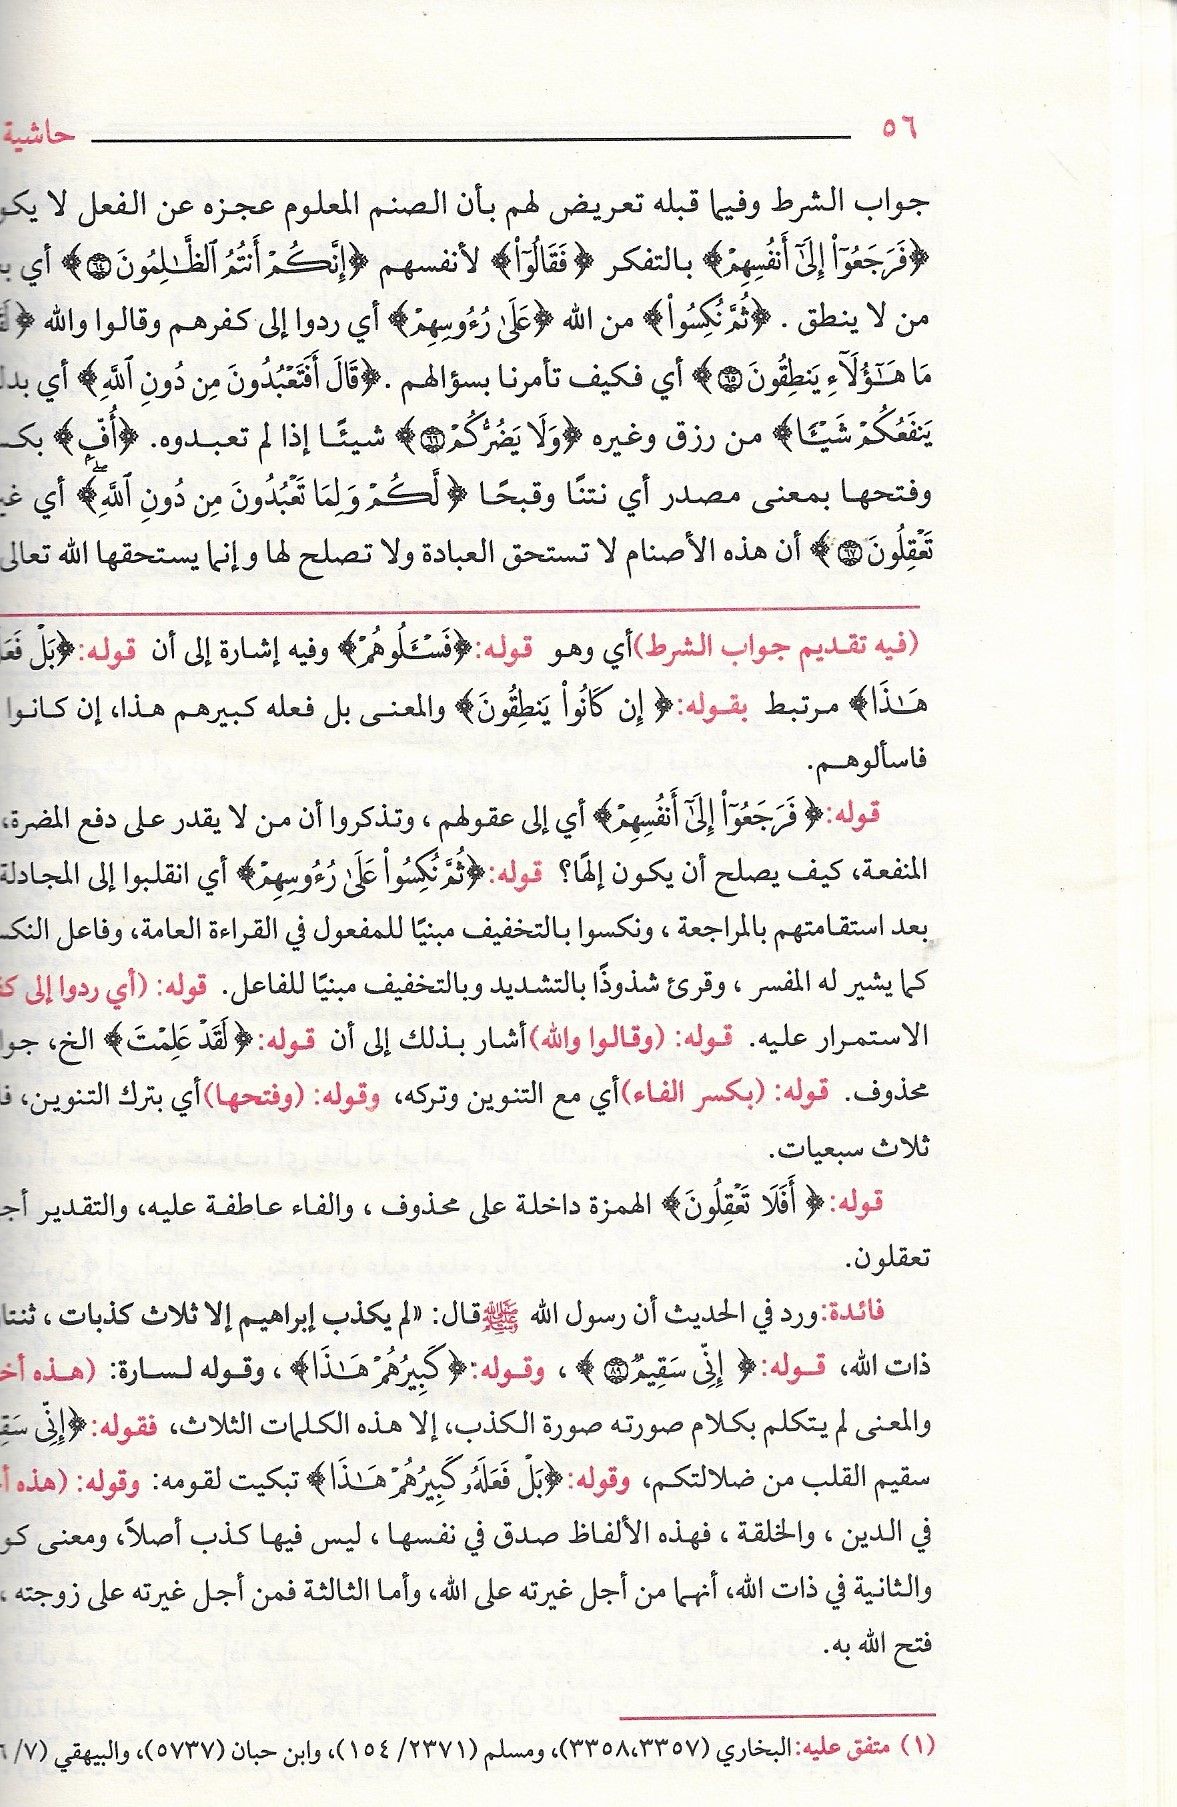 ٥٦
حاشية
جواب الشرط وفيما قبله تعريض لهم بأن الصنم المعلوم عجزه عن الفعل لا
﴿فَرَجَعُوٓا۟ إِلَىٰٓ أَنفُسِهِمْ﴾ بالتفكر ﴿فَقَالُوٓا۟﴾ لأنفسهم ﴿إِنَّكُمْ أَنتُمُ ٱلظَّـٰلِمُونَ ٦٤﴾ أي
من لا ينطق . ﴿ثُمَّ نُكِسُوا۟﴾ من الله ﴿عَلَىٰ رُءُوسِهِمْ﴾ أي ردوا إلى كفرهم وقالوا والله
مَا هَـٰٓؤُلَآءِ يَنطِقُونَ ٦٥﴾ أي فكيف تأمرنا بسؤالهم . ﴿قَالَ أَفَتَعْبُدُونَ مِن دُونِ ٱللَّهِ﴾ أي
يَنفَعُكُمْ شَيْـًٔا﴾ من رزق وغيره ﴿وَلَا يَضُرُّكُمْ ٦٦﴾ شيئًا إذا لم تعبدوه. ﴿أُفٍّ﴾
وفتحها بمعنى مصدر أي نتنًا وقبحًا ﴿لَّكُمْ وَلِمَا تَعْبُدُونَ مِن دُونِ ٱللَّهِۖ﴾ أي
تَعْقِلُونَ ٦٧﴾ أن هذه الأصنام لا تستحق العبادة ولا تصلح لها وإنما يستحقها الله تعالى
(فيه تقديم جواب الشرط) أي وهو قوله: ﴿فَسْـَٔلُوهُمْ﴾ وفيه إشارة إلى أن قوله: ﴿بَلْ
هَـٰذَا﴾ مرتبط بقوله: ﴿إِن كَانُوا۟ يَنطِقُونَ﴾ والمعنى بل فعله كبيرهم هذا، إن كانوا
فاسألوهم.
قوله: ﴿فَرَجَعُوٓا۟ إِلَىٰٓ أَنفُسِهِمْ﴾ أي إلى عقولهم ، وتذكروا أن من لا يقدر على دفع المضرة،
المنفعة، كيف يصلح أن يكون إلهًا؟ قوله: ﴿ثُمَّ نُكِسُوا۟ عَلَىٰ رُءُوسِهِمْ﴾ أي انقلبوا إلى المجادلة
بعد استقامتهم بالمراجعة ، ونكسوا بالتخفيف مبنيًا للمفعول في القراءة العامة، وفاعل
كما يشير له المفسر ، وقرئ شذوذًا بالتشديد وبالتخفيف مبنيًا للفاعل. قوله: (أي ردوا إلى
الاستمرار عليه. قوله: (وقالوا والله) أشار بذلك إلى أن قوله: ﴿لَقَدْ عَلِمْتَ﴾ الخ،
محذوف. قوله: (بكسر الفاء) أي مع التنوين وتركه، وقوله: (وفتحها) أي بترك التنوين،
ثلاث سبعيات.
قوله: ﴿أَفَلَا تَعْقِلُونَ﴾ الهمزة داخلة على محذوف ، والفاء عاطفة عليه، والتقدير
تعقلون.
فائدة: ورد في الحديث أن رسول الله ﷺ قال: «لم يكذب إبراهيم إلا ثلاث كذبات ،
ذات الله، قوله: ﴿إِنِّى سَقِيمٌ ٨٩﴾ ، وقوله: ﴿كَبِيرُهُمْ هَـٰذَا﴾ ، وقوله لسارة: (هذه
والمعنى لم يتكلم بكلام صورته صورة الكذب، إلا هذه الكلمات الثلاث، فقوله: ﴿إِنِّى
سقيم القلب من ضلالتكم، وقوله: ﴿بَلْ فَعَلَهُۥ كَبِيرُهُمْ هَـٰذَا﴾ تبكيت لقومه: وقوله: (هذه
في الدين ، والخلقة ، فهذه الألفاظ صدق في نفسها ، ليس فيها كذب أصلاً، ومعنى
والثانية في ذات الله، أنهما من أجل غيرته على الله، وأما الثالثة فمن أجل غيرته على زوجته ،
فتح الله به.
(١) متفق عليه: البخاري (٣٣٥٨،٣٣٥٧)، ومسلم (٢٣٧١/ ١٥٤)، وابن حبان (٥٧٣٧)، والبيهقي (٧/